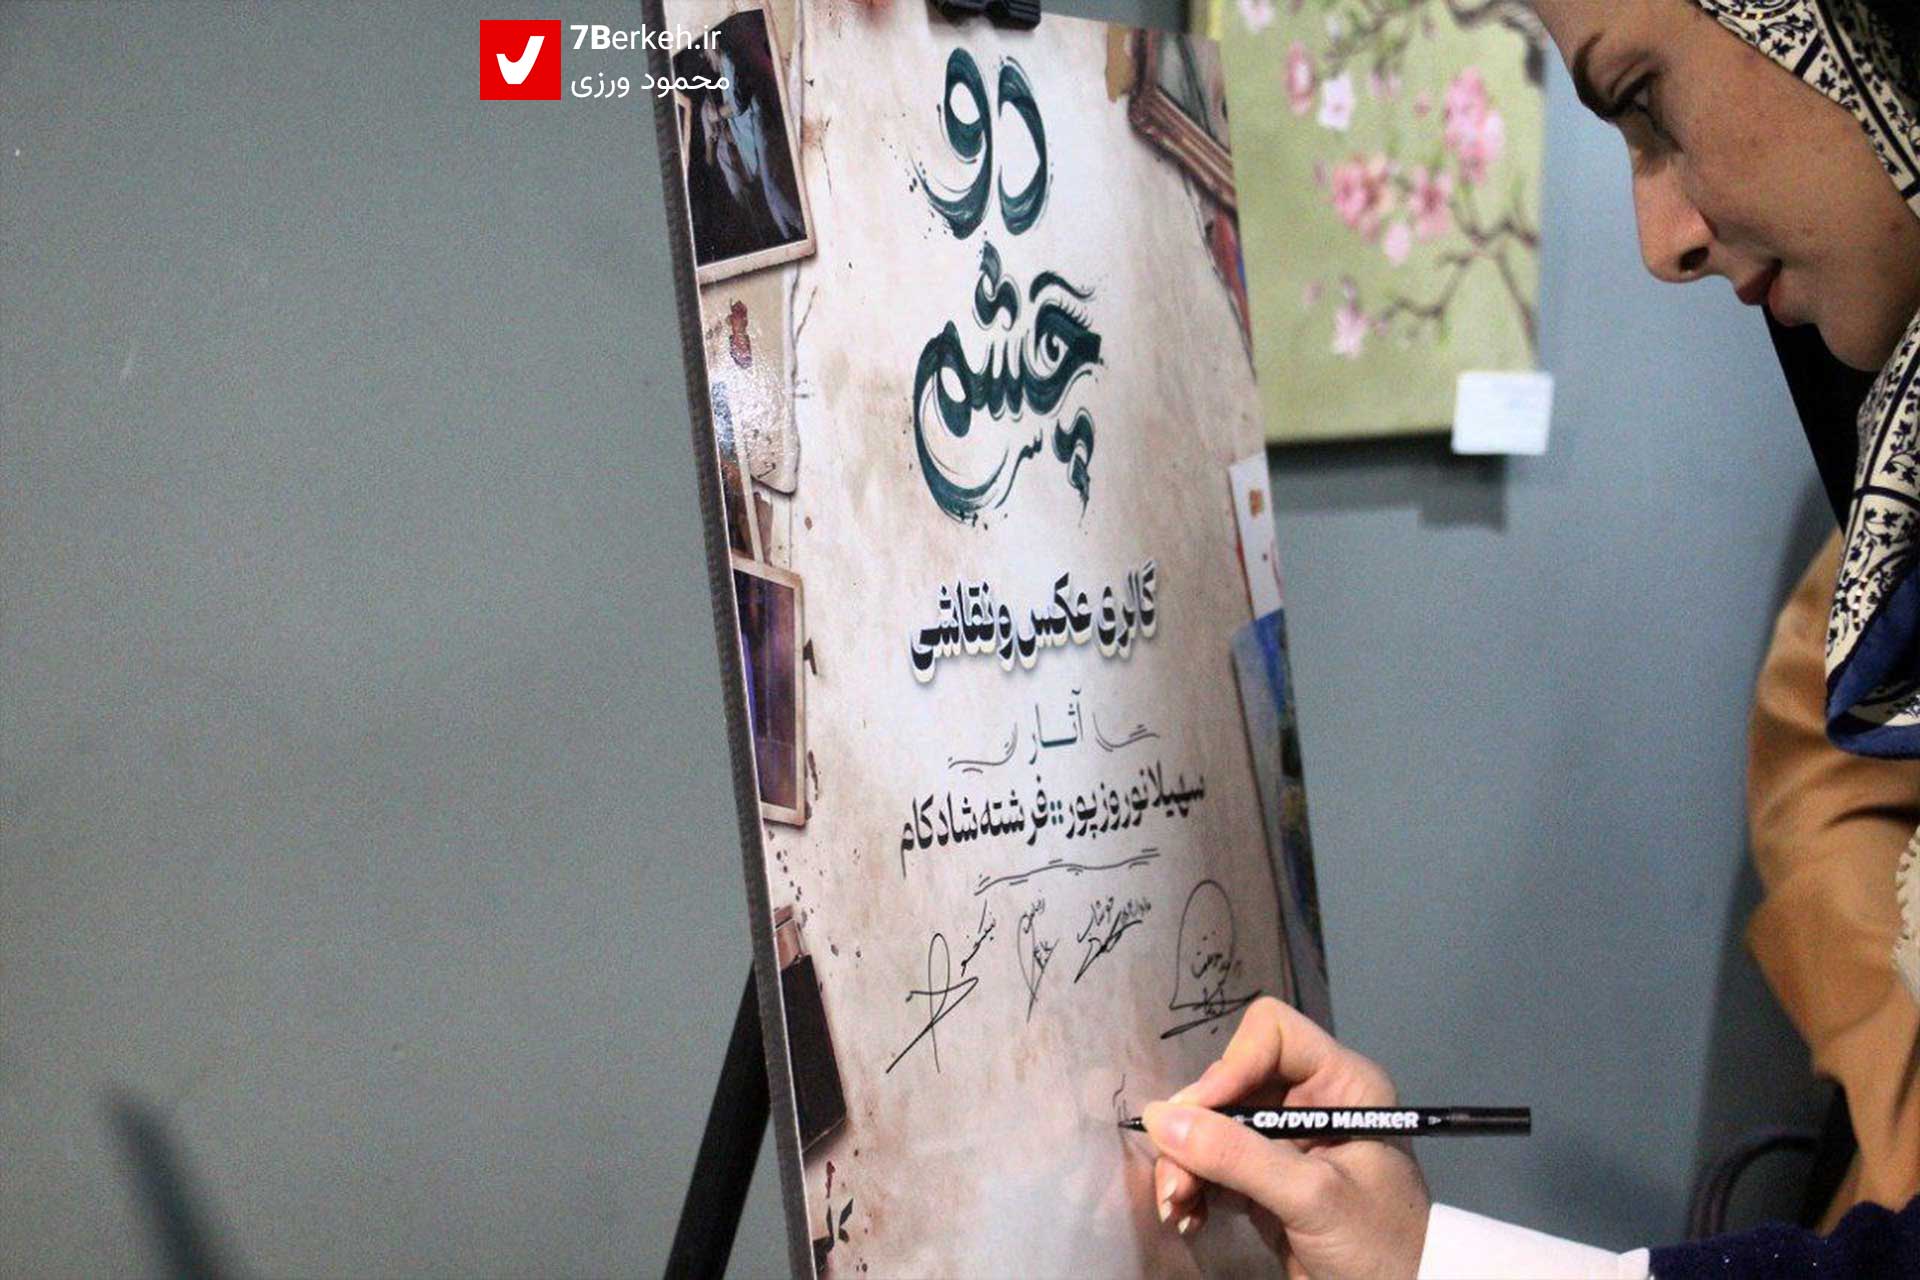 7Berkeh.ir
محمود ورزی
دو
چشم
گالری عکس و نقاشی
آثار
سهیلا نوروزپور :: فرشته شادکام
CD/DVD MARKER